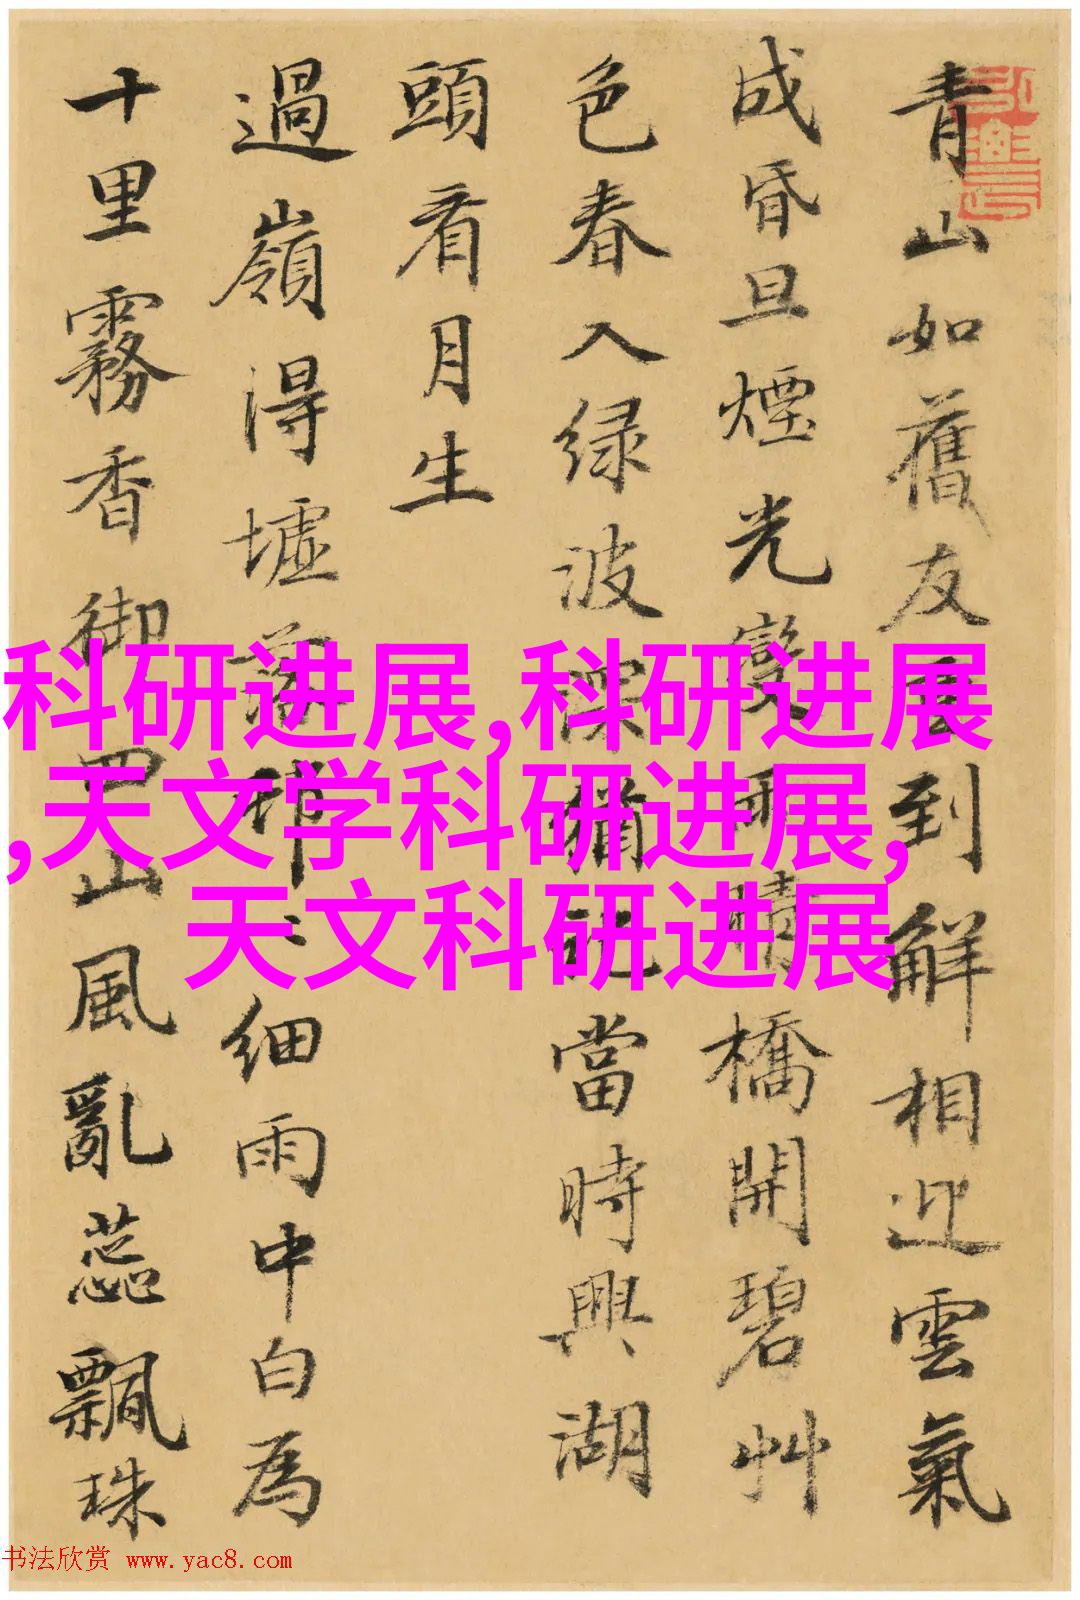 青山如舊友重到解相迎雲氣
成昏旦煙光變雨晴橋開碧艸
色春入绿波深猶記當時興湖
頭看月生
過嶺得墟落細雨中白為
十里霧香御四山風亂蕊飄珠
科研进展,科研进展
,天文学科研进展,
天文科研进展
书法欣赏 www.yac8.com